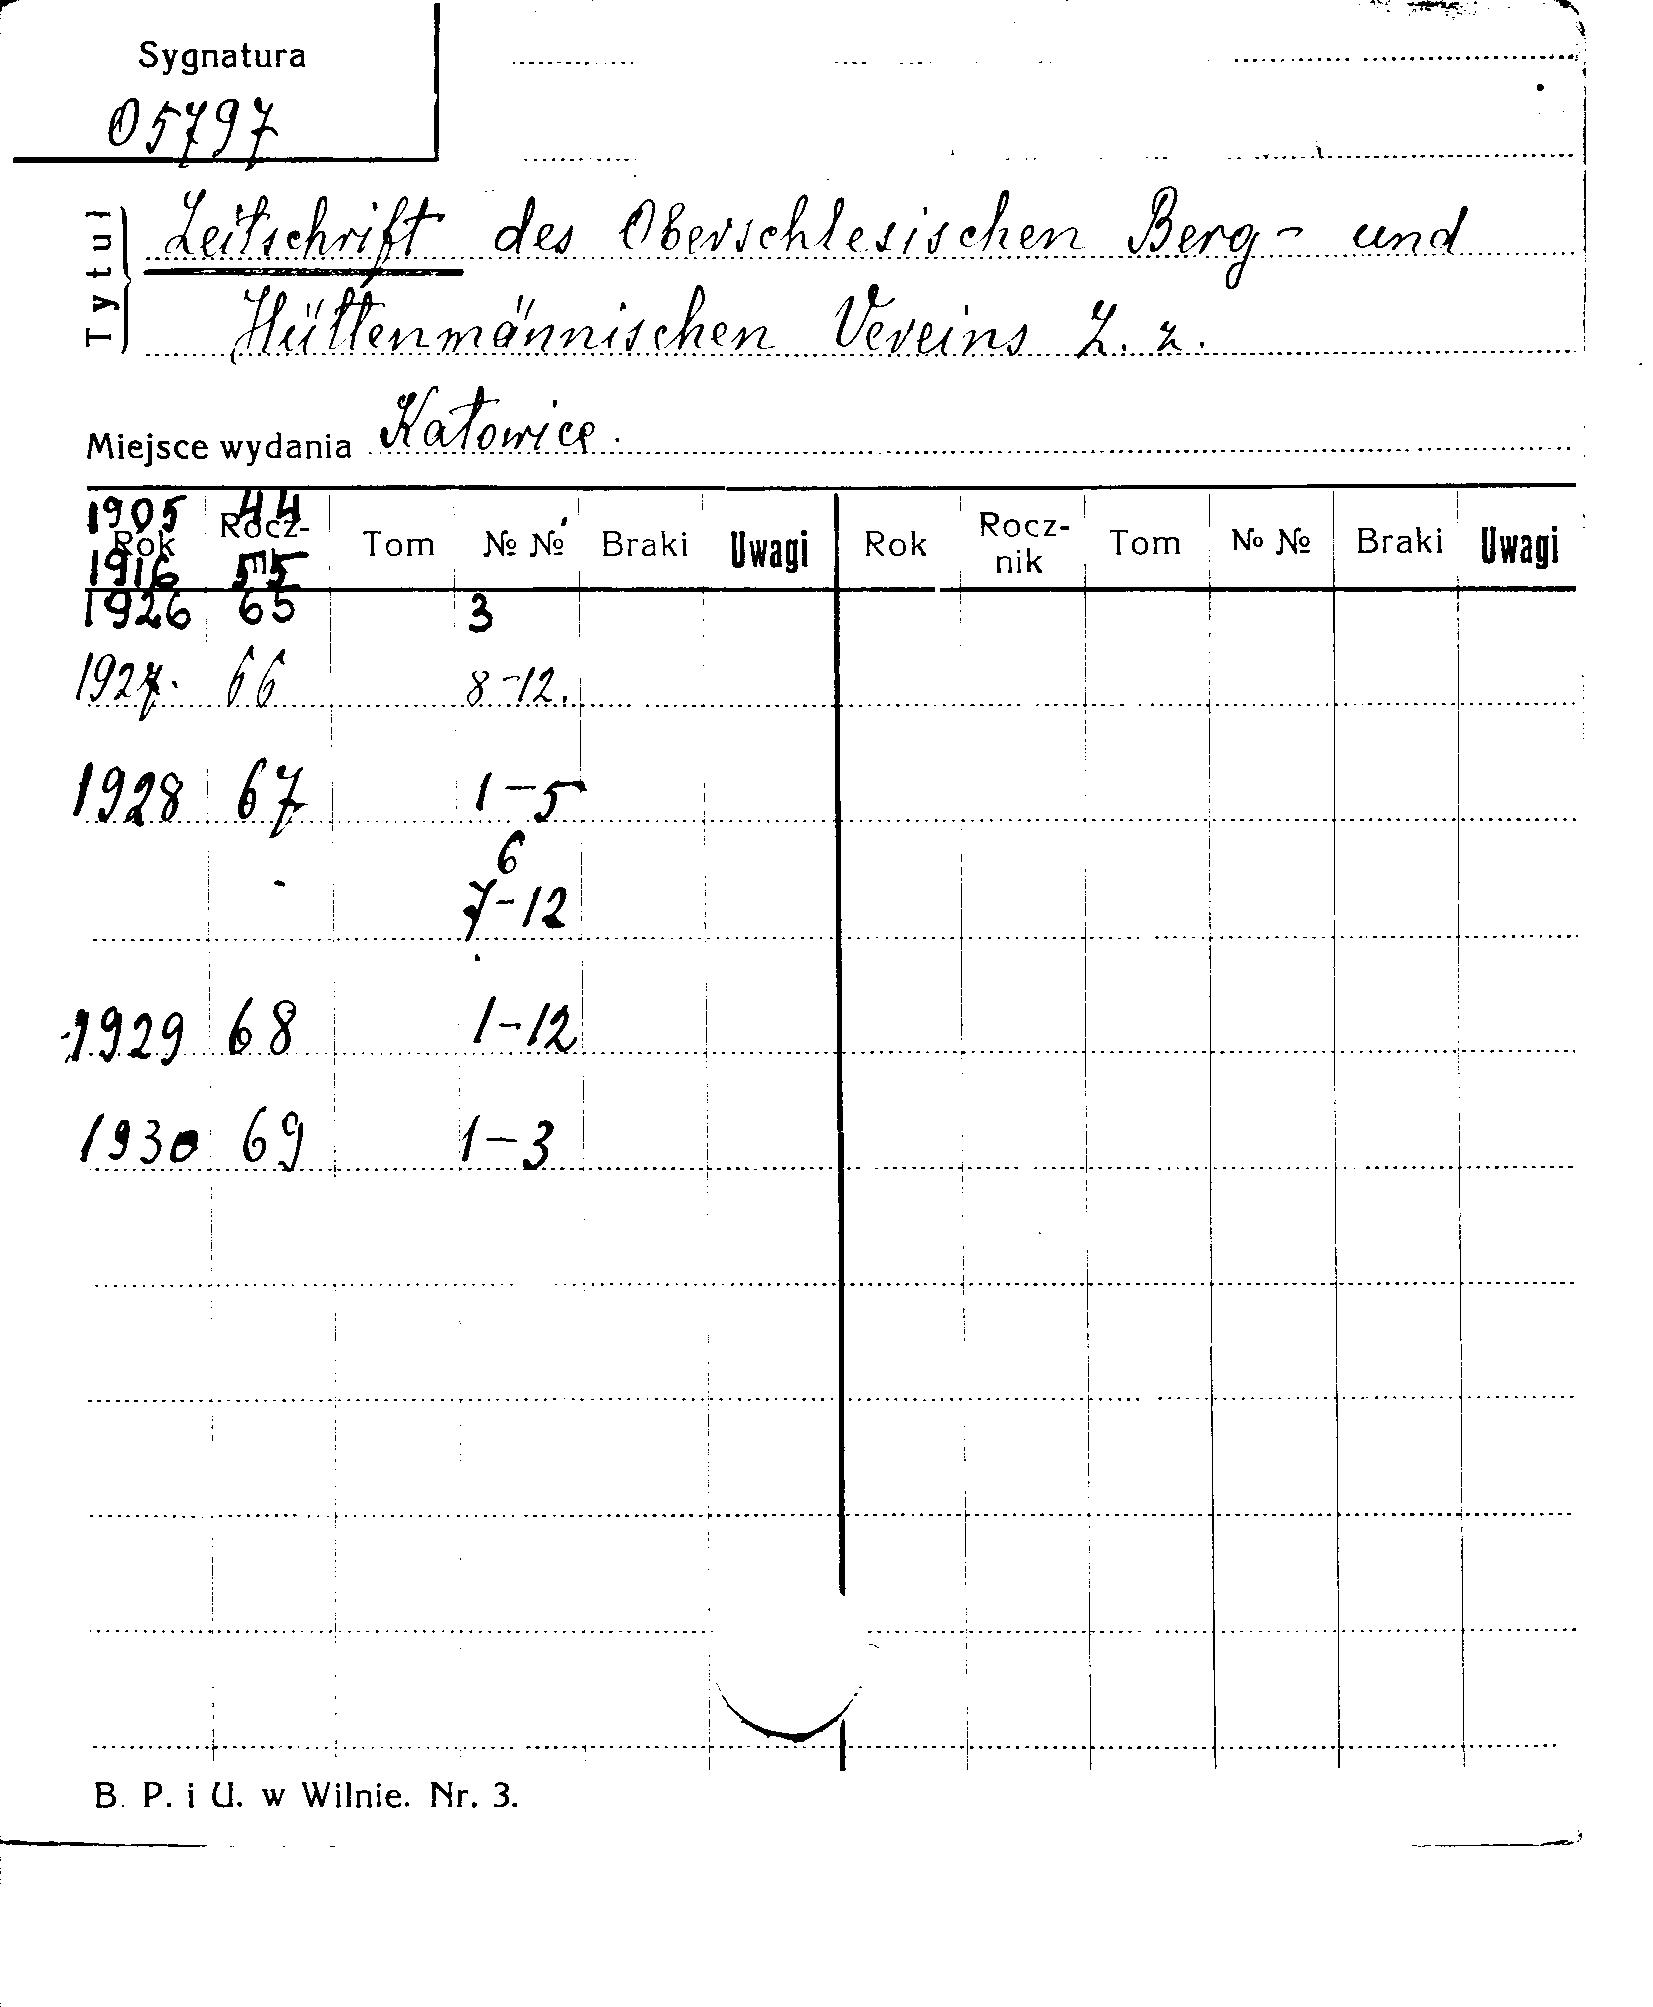 Sygnatura
05797
Tytuł
Zeitschrift des Oberschlesischen Berg- und
Hüttenmännischen Vereins Z. z.
Miejsce wydania Katowice.
1905 44
Rok Rocz-nik Tom № № Braki Uwagi Rok Rocz-nik Tom № № Braki Uwagi
1916 55
1926 65 3
1927. 66 8-12.
1928 67 1-5
6
7-12
1929 68 1-12
1930 69 1-3
B. P. i U. w Wilnie. Nr. 3.